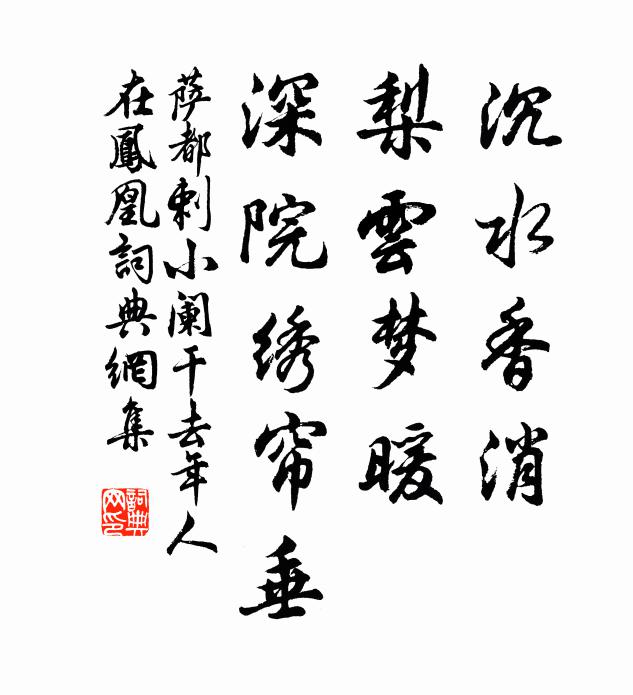 沉水香消
梨雲梦暖
深院绣帘垂
萨都剌小阑干去年人
在鳳凰詞典網集
詞典
网印